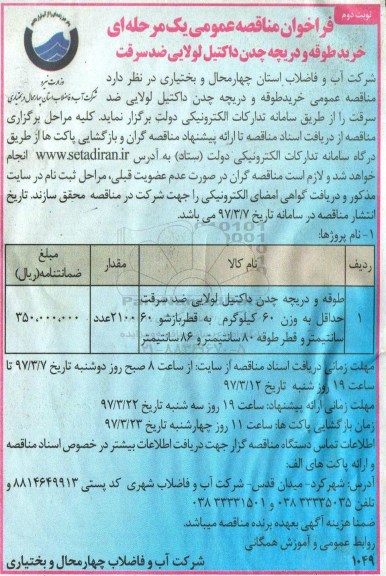 نوبت دوم
فراخوان مناقصه عمومی یک مرحله‌ای
خرید طوقه و دریچه چدن داکتیل لولایی ضد سرقت
وزارت نیرو
شرکت آب و فاضلاب استان چهارمحال و بختیاری
شرکت آب و فاضلاب استان چهارمحال و بختیاری در نظر دارد
مناقصه عمومی خرید طوقه و دریچه چدن داکتیل لولایی ضد
سرقت را از طریق سامانه تدارکات الکترونیکی دولت برگزار نماید. کلیه مراحل برگزاری
مناقصه از دریافت اسناد مناقصه تا ارائه پیشنهاد مناقصه گران و بازگشایی پاکت ها از طریق
درگاه سامانه تدارکات الکترونیکی دولت (ستاد) به آدرس www.setadiran.ir انجام
خواهد شد و لازم است مناقصه گران در صورت عدم عضویت قبلی، مراحل ثبت نام در سایت
مذکور و دریافت گواهی امضای الکترونیکی را جهت شرکت در مناقصه محقق سازند. تاریخ
انتشار مناقصه در سامانه تاریخ ۹۷/۳/۷ می باشد.
۱- نام پروژها:
ردیف نام کالا مقدار مبلغ ضمانتنامه(ریال)
۱ طوقه و دریچه چدن داکتیل لولایی ضد سرقت
حداقل به وزن ۶۰ کیلوگرم به قطر بازشو ۶۰ ۲۱۰۰عدد ۳۵۰.۰۰۰.۰۰۰
سانتیمتر و قطر طوقه ۸۰ سانتیمتر و ۸۶ سانتیمتر
مهلت زمانی دریافت اسناد مناقصه از سایت: از ساعت ۸ صبح روز دوشنبه تاریخ ۹۷/۳/۷ تا
ساعت ۱۹ روز شنبه تاریخ ۹۷/۳/۱۲
مهلت زمانی ارائه پیشنهاد: ساعت ۱۹ روز سه شنبه تاریخ ۹۷/۳/۲۲
زمان بازگشایی پاکت ها: ساعت ۱۱ روز چهارشنبه تاریخ ۹۷/۳/۲۳
اطلاعات تماس دستگاه مناقصه گزار جهت دریافت اطلاعات بیشتر در خصوص اسناد مناقصه
و ارائه پاکت های الف:
آدرس: شهرکرد- میدان قدس- شرکت آب و فاضلاب شهری کد پستی ۸۸۱۴۶۴۹۹۱۳ و
تلفن ۳۳۳۳۵۰۳۵ ۰۳۸ و ۳۳۳۳۱۵۰۱ ۰۳۸
ضمنا هزینه آگهی بعهده برنده مناقصه میباشد.
روابط عمومی و آموزش همگانی
۱۰۴۹ شرکت آب و فاضلاب چهارمحال و بختیاری